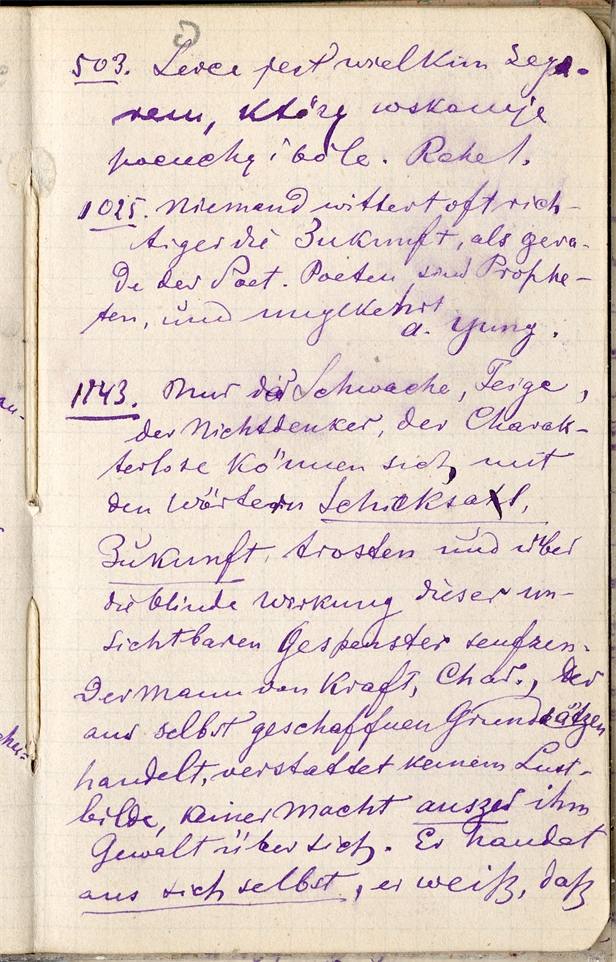 503. Serce jest wielkim zega-
rem, który wskazuje
pociechę i bóle. Rahel.
1025. Niemand wittert oft rich-
tiger die Zukunft, als gera-
de der Poet. Poeten sind Prophe-
ten, und umgekehrt
a. Yung.
1143. Nur der Schwache, Feige,
der Nichtdenker, der Charak-
terlose können sich mit
den Wörtern Schicksal,
Zukunft, trosten und über
die blinde Wirkung dieser un-
sichtbaren Gespenster seufzen.
Der Mann von Kraft, Char., der
aus selbst geschaffnen Grundsätzen
handelt, verstattet keinem Luft-
bilde, keiner Macht auszer ihm
Gewalt über sich. Er handat
aus sich selbst, er weiß, daß